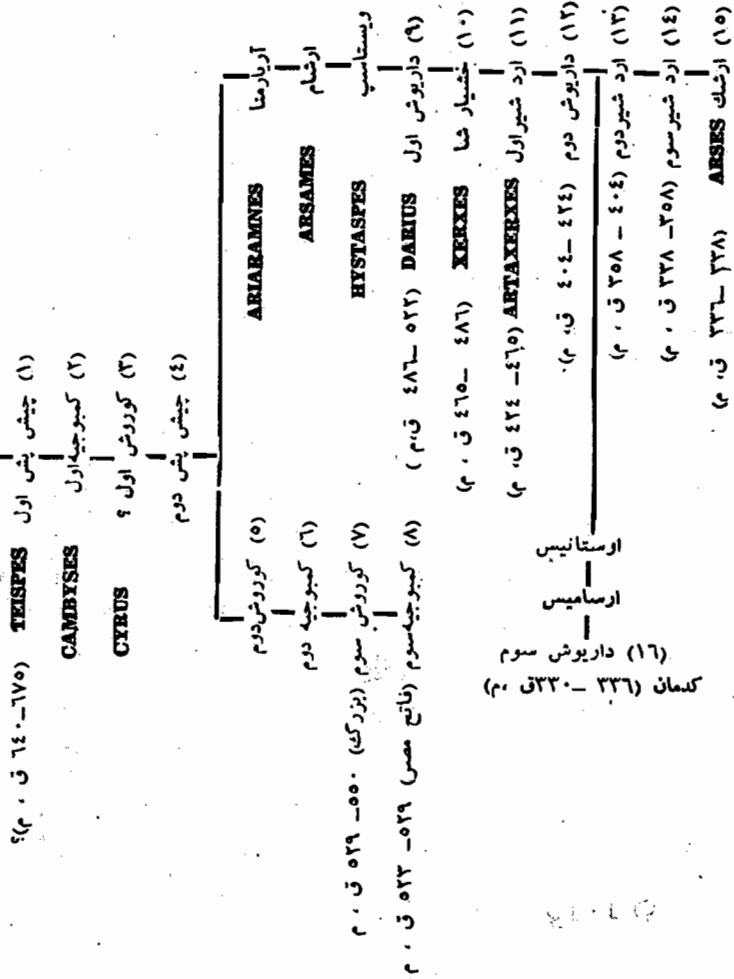 (١) چیش پش اول TEISPES (٦٧٥_٦٤٠ ق ، م)؟
(٢) کمبوجیه‌اول CAMBYSES
(٣) کوروش اول ؟ CYRUS
(٤) چیش پش دوم
(٥) کوروش‌دوم
(٦) کمبوجیه دوم
(٧) کوروش سوم (بزرگ) ٥٥٠_ ٥٢٩ ق ، م
(٨) کمبوجیه‌سوم (فاتح مصر) ٥٢٩_ ٥٢٣ ق ، م
آریارمنا ARIARAMNES
ارشام ARSAMES
ویستاسپ HYSTASPES
(٩) داریوش اول DARIUS (٥٢٢_ ٤٨٦ ق،م )
(١٠) خشیار شا XERXES (٤٨٦ _ ٤٦٥ ق ، م)
(١١) ارد شیراول ARTAXERXES (٤٦٥_ ٤٢٤ ق، م)
(١٢) داریوش دوم (٤٢٤ _٤٠٤ ق، م).
(١٣) ارد شیردوم (٤٠٤ _ ٣٥٨ ق ، م)
(١٤) ارد شیرسوم (٣٥٨_ ٣٣٨ ق ، م)
(١٥) ارشك ARSES (٣٣٨ _٣٣٦ ق، م)
اوستانیس
ارسامیس
(١٦) داریوش سوم
کدمان (٣٣٦ _٣٣٠ق ،م)